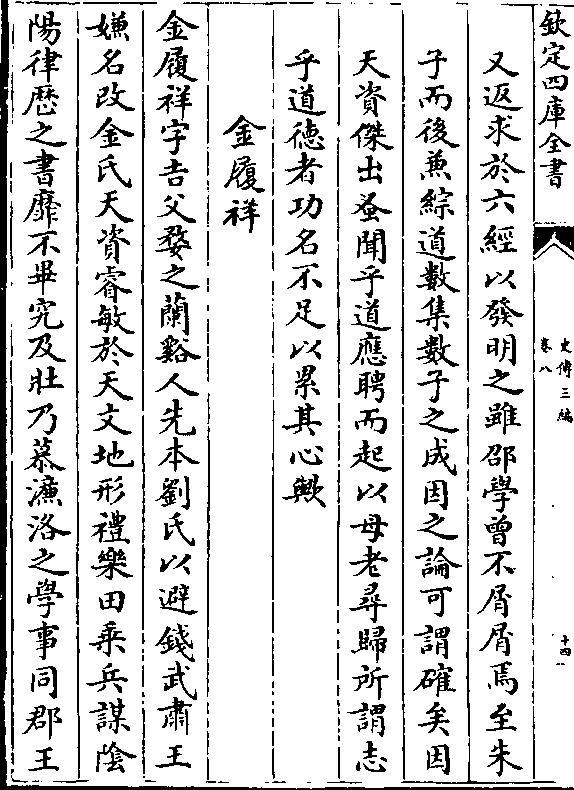 欽定四庫全書
史傳三編
卷八
十四
又返求於六經以發明之雖邵學曾不屑屑焉至朱
子而後兼綜道數集數子之成因之論可謂確矣因
天資傑出蚤聞乎道應聘而起以母老尋歸所謂志
乎道徳者功名不足以累其心歟
金履祥
金履祥字吉父婺之蘭谿人先本劉氏以避錢武肅王
嫌名改金氏天資睿敏於天文地形禮樂田乘兵謀陰
陽律厯之書靡不畢究及壯乃慕濂洛之學事同郡王